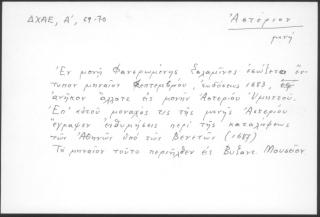 ΔΧΑΕ, Α΄, 69-70
Ἀστέριον
μονή
Ἐν μονῇ Φανερωμένης Σαλαμῖνος ἐσώζετο ἓν
τυπον μηναῖον Σεπτεμβρίου, ἐκδόσεως 1683,
ἀνῆκον ἄλλοτε εἰς μονὴν Ἀστερίου Ὑμηττοῦ.
Ἐπ' αὐτοῦ μοναχός τις τῆς μονῆς Ἀστερίου
ἔγραψεν ἐνθυμήσεις περὶ τῆς καταλήψεως
τῶν Ἀθηνῶν ὑπὸ τῶν Βενετῶν (1687)
Τὸ μηναῖον τοῦτο περιῆλθεν εἰς Βυζαντ. Μουσεῖον